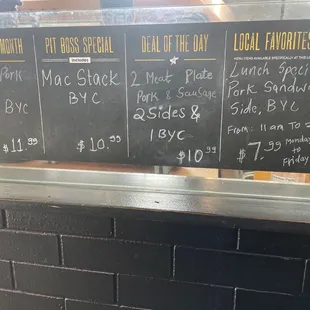 MONTH
Pork
BYC
$11.99
PIT BOSS SPECIAL
Mac Stack
BYC
$10.99
DEAL OF THE DAY
2 Meat Plate
Pork & Sausage
2 Sides &
1 BYC
$10.99
LOCAL FAVORITES
Lunch Speci
Pork Sandw
Side, BYC
From: 11 am To 2
$7.99 Monday
to
Friday